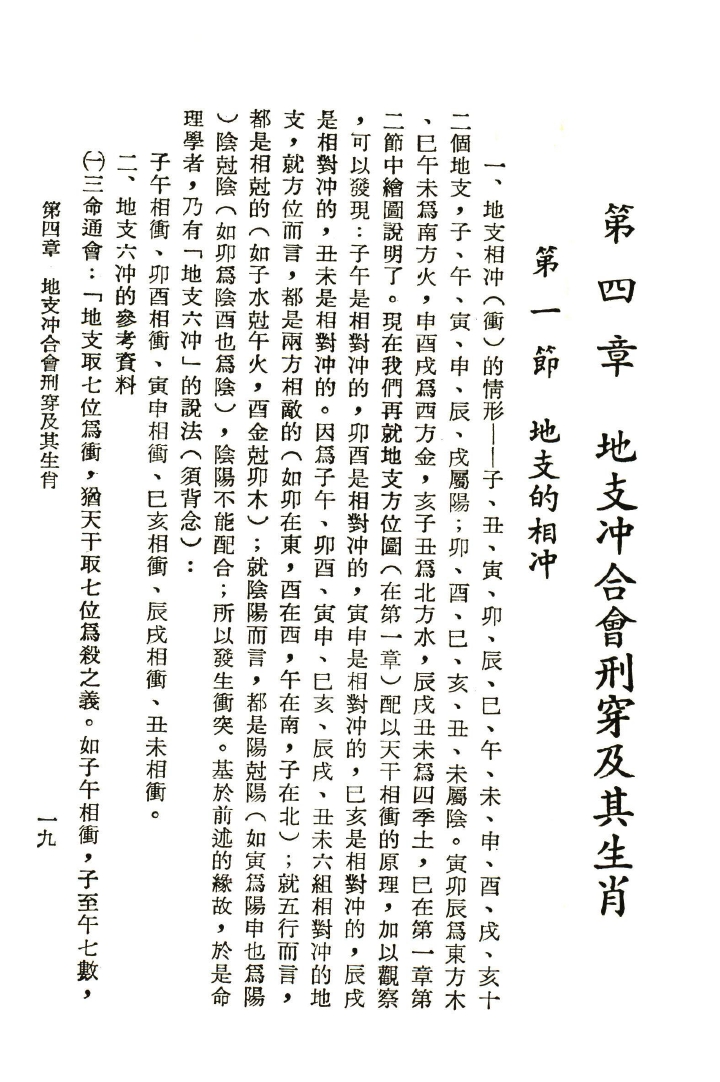 第四章　地支冲合會刑穿及其生肖
第一節　地支的相冲
一、地支相冲（衝）的情形——子、丑、寅、卯、辰、巳、午、未、申、酉、戌、亥十
二個地支，子、午、寅、申、辰、戌屬陽；卯、酉、巳、亥、丑、未屬陰。寅卯辰爲東方木
、巳午未爲南方火，申酉戌爲西方金，亥子丑爲北方水，辰戌丑未爲四季土，巳在第一章第
二節中繪圖說明了。現在我們再就地支方位圖（在第一章）配以天干相衝的原理，加以觀察
，可以發現：子午是相對冲的，卯酉是相對冲的，寅申是相對冲的，巳亥是相對冲的，辰戌
是相對冲的，丑未是相對冲的。因爲子午、卯酉、寅申、巳亥、辰戌、丑未六組相對冲的地
支，就方位而言，都是兩方相敵的（如卯在東，酉在西，午在南，子在北）；就五行而言，
都是相尅的（如子水尅午火，酉金尅卯木）；就陰陽而言，都是陽尅陽（如寅爲陽申也爲陽
）陰尅陰（如卯爲陰酉也爲陰），陰陽不能配合；所以發生衝突。基於前述的緣故，於是命
理學者，乃有「地支六冲」的說法（須背念）：
子午相衝、卯酉相衝、寅申相衝、巳亥相衝、辰戌相衝、丑未相衝。
二、地支六冲的參考資料
㈠三命通會：「地支取七位爲衝，猶天干取七位爲殺之義。如子午相衝，子至午七數，
第四章　地支冲合會刑穿及其生肖
一九